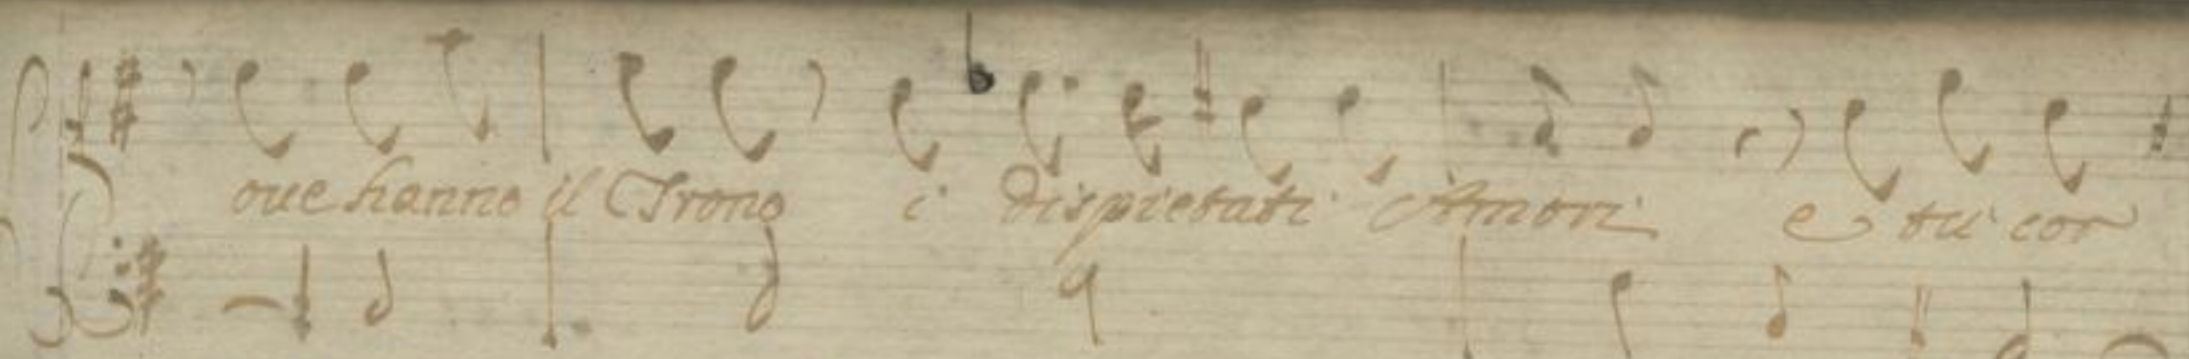 oue hanno il Trono i dispietati Amori e tu cor